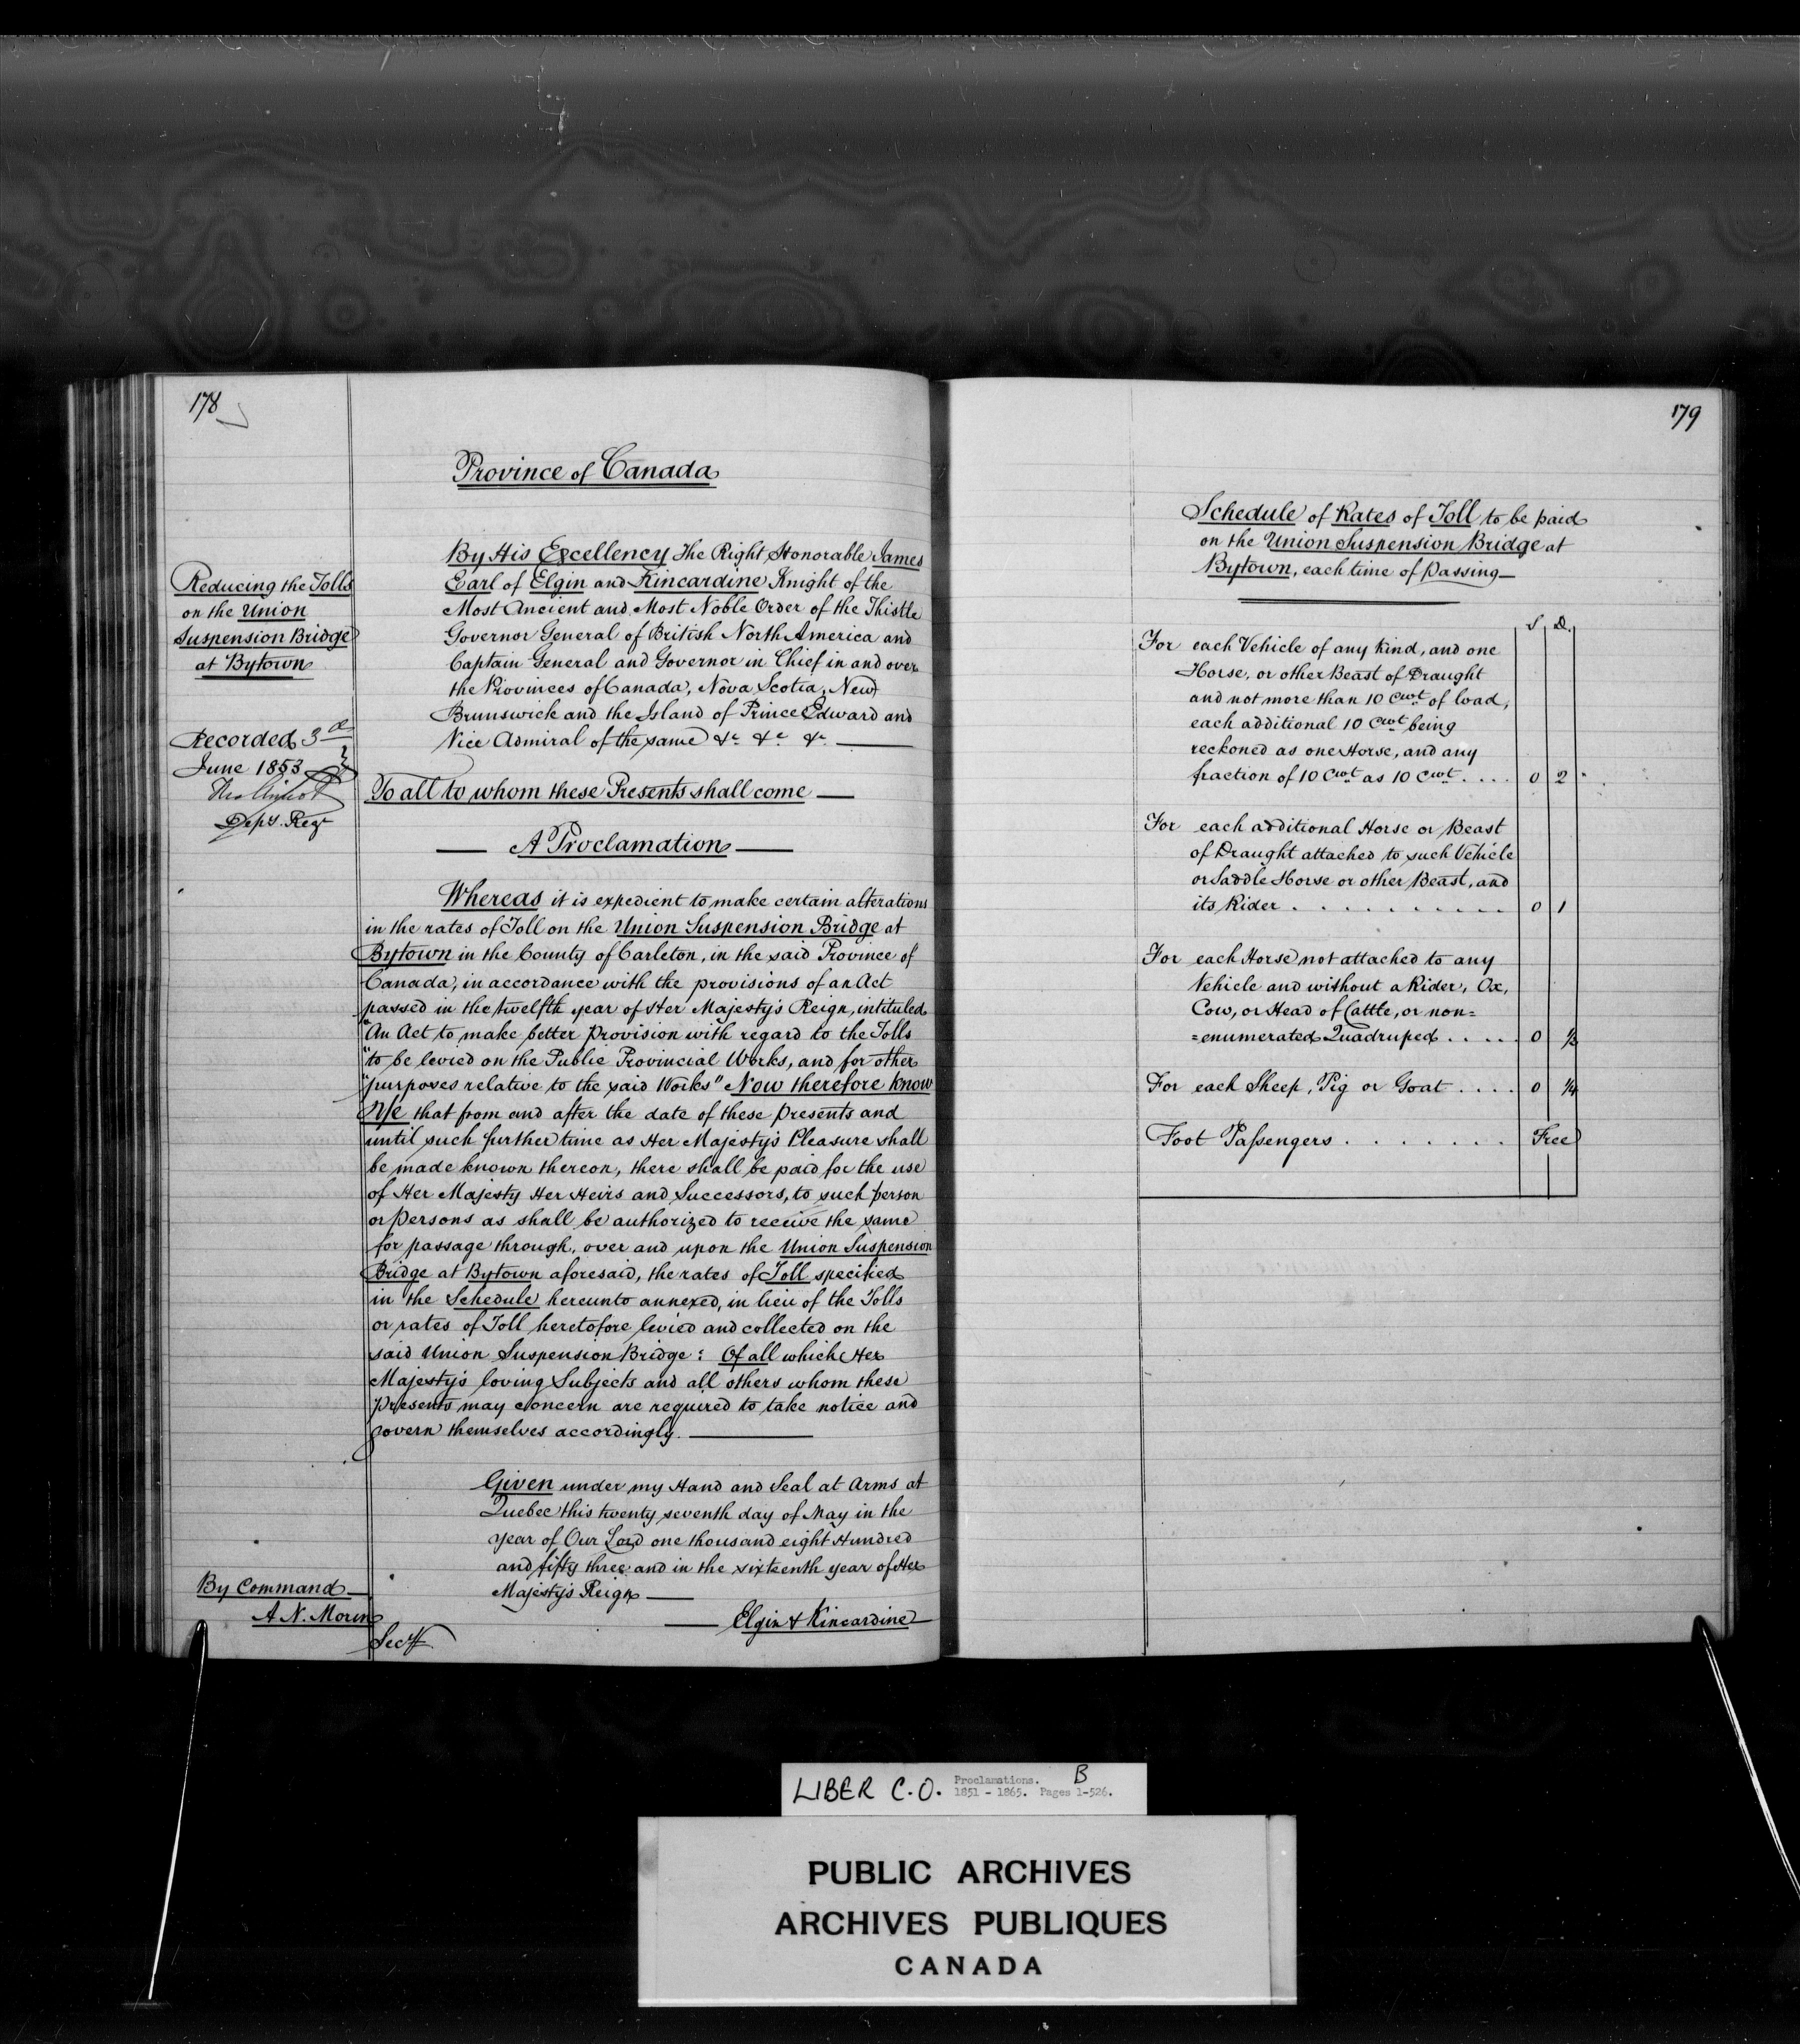 178
Province of Canada
Reducing the Tolls
on the Union
Suspension Bridge
at Bytown
Recorded 3d
June 1853
Depy. Regr
By His Excellency The Right Honorable James
Earl of Elgin and Kincardine Knight of the
Most Ancient and Most Noble Order of the Thistle
Governor General of British North America and
Captain General and Governor in Chief in and over
the Provinces of Canada, Nova Scotia, New
Brunswick and the Island of Prince Edward and
Vice Admiral of the same &c &c &c
To all to whom these Presents shall come —
— A Proclamation —
Whereas it is expedient to make certain alterations
in the rates of Toll on the Union Suspension Bridge at
Bytown in the County of Carleton, in the said Province of
Canada, in accordance with the provisions of an Act
passed in the twelfth year of Her Majesty's Reign, intituled
"An Act to make better provision with regard to the Tolls
"to be levied on the Public Provincial Works, and for other
"purposes relative to the said Works" Now therefore know
Ye that from and after the date of these presents and
until such further time as Her Majesty's Pleasure shall
be made known thereon, there shall be paid for the use
of Her Majesty Her Heirs and Successors, to such person
or persons as shall be authorized to receive the same
for passage through, over and upon the Union Suspension
Bridge at Bytown aforesaid, the rates of Toll specified
in the Schedule hereunto annexed, in lieu of the Tolls
or rates of Toll heretofore levied and collected on the
said Union Suspension Bridge: Of all which Her
Majesty's loving Subjects and all others whom these
presents may concern are required to take notice and
govern themselves accordingly. —
Given under my Hand and Seal at Arms at
Quebec this twenty seventh day of May in the
year of Our Lord one thousand eight Hundred
and fifty three and in the sixteenth year of Her
Majesty's Reign —
— Elgin & Kincardine
By Command —
A. N. Morin
Secy
179
Schedule of Rates of Toll to be paid
on the Union Suspension Bridge at
Bytown, each time of passing —
S. D.
For each Vehicle of any kind, and one
Horse, or other Beast of Draught
and not more than 10 Cwt of load,
each additional 10 Cwt being
reckoned as one Horse, and any
fraction of 10 Cwt as 10 Cwt .... 0 2
For each additional Horse or Beast
of Draught attached to such Vehicle
or Saddle Horse or other Beast, and
its Rider . . . . . . . . . . . 0 1
For each Horse not attached to any
Vehicle and without a Rider, Ox,
Cow, or Head of Cattle, or non=
=enumerated Quadruped ..... 0 ½
For each Sheep, Pig or Goat .... 0 ¼
Foot Passengers . . . . . . . Free
LIBER C.O. Proclamations. B
1851 - 1865. Pages 1-526.
PUBLIC ARCHIVES
ARCHIVES PUBLIQUES
CANADA